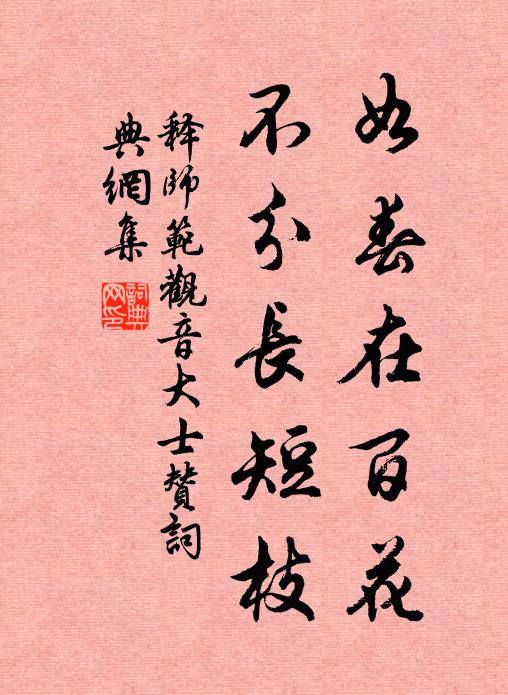 如春在百花
不分長短枝
释師範觀音大士贊詞
典網集
詞典
网印